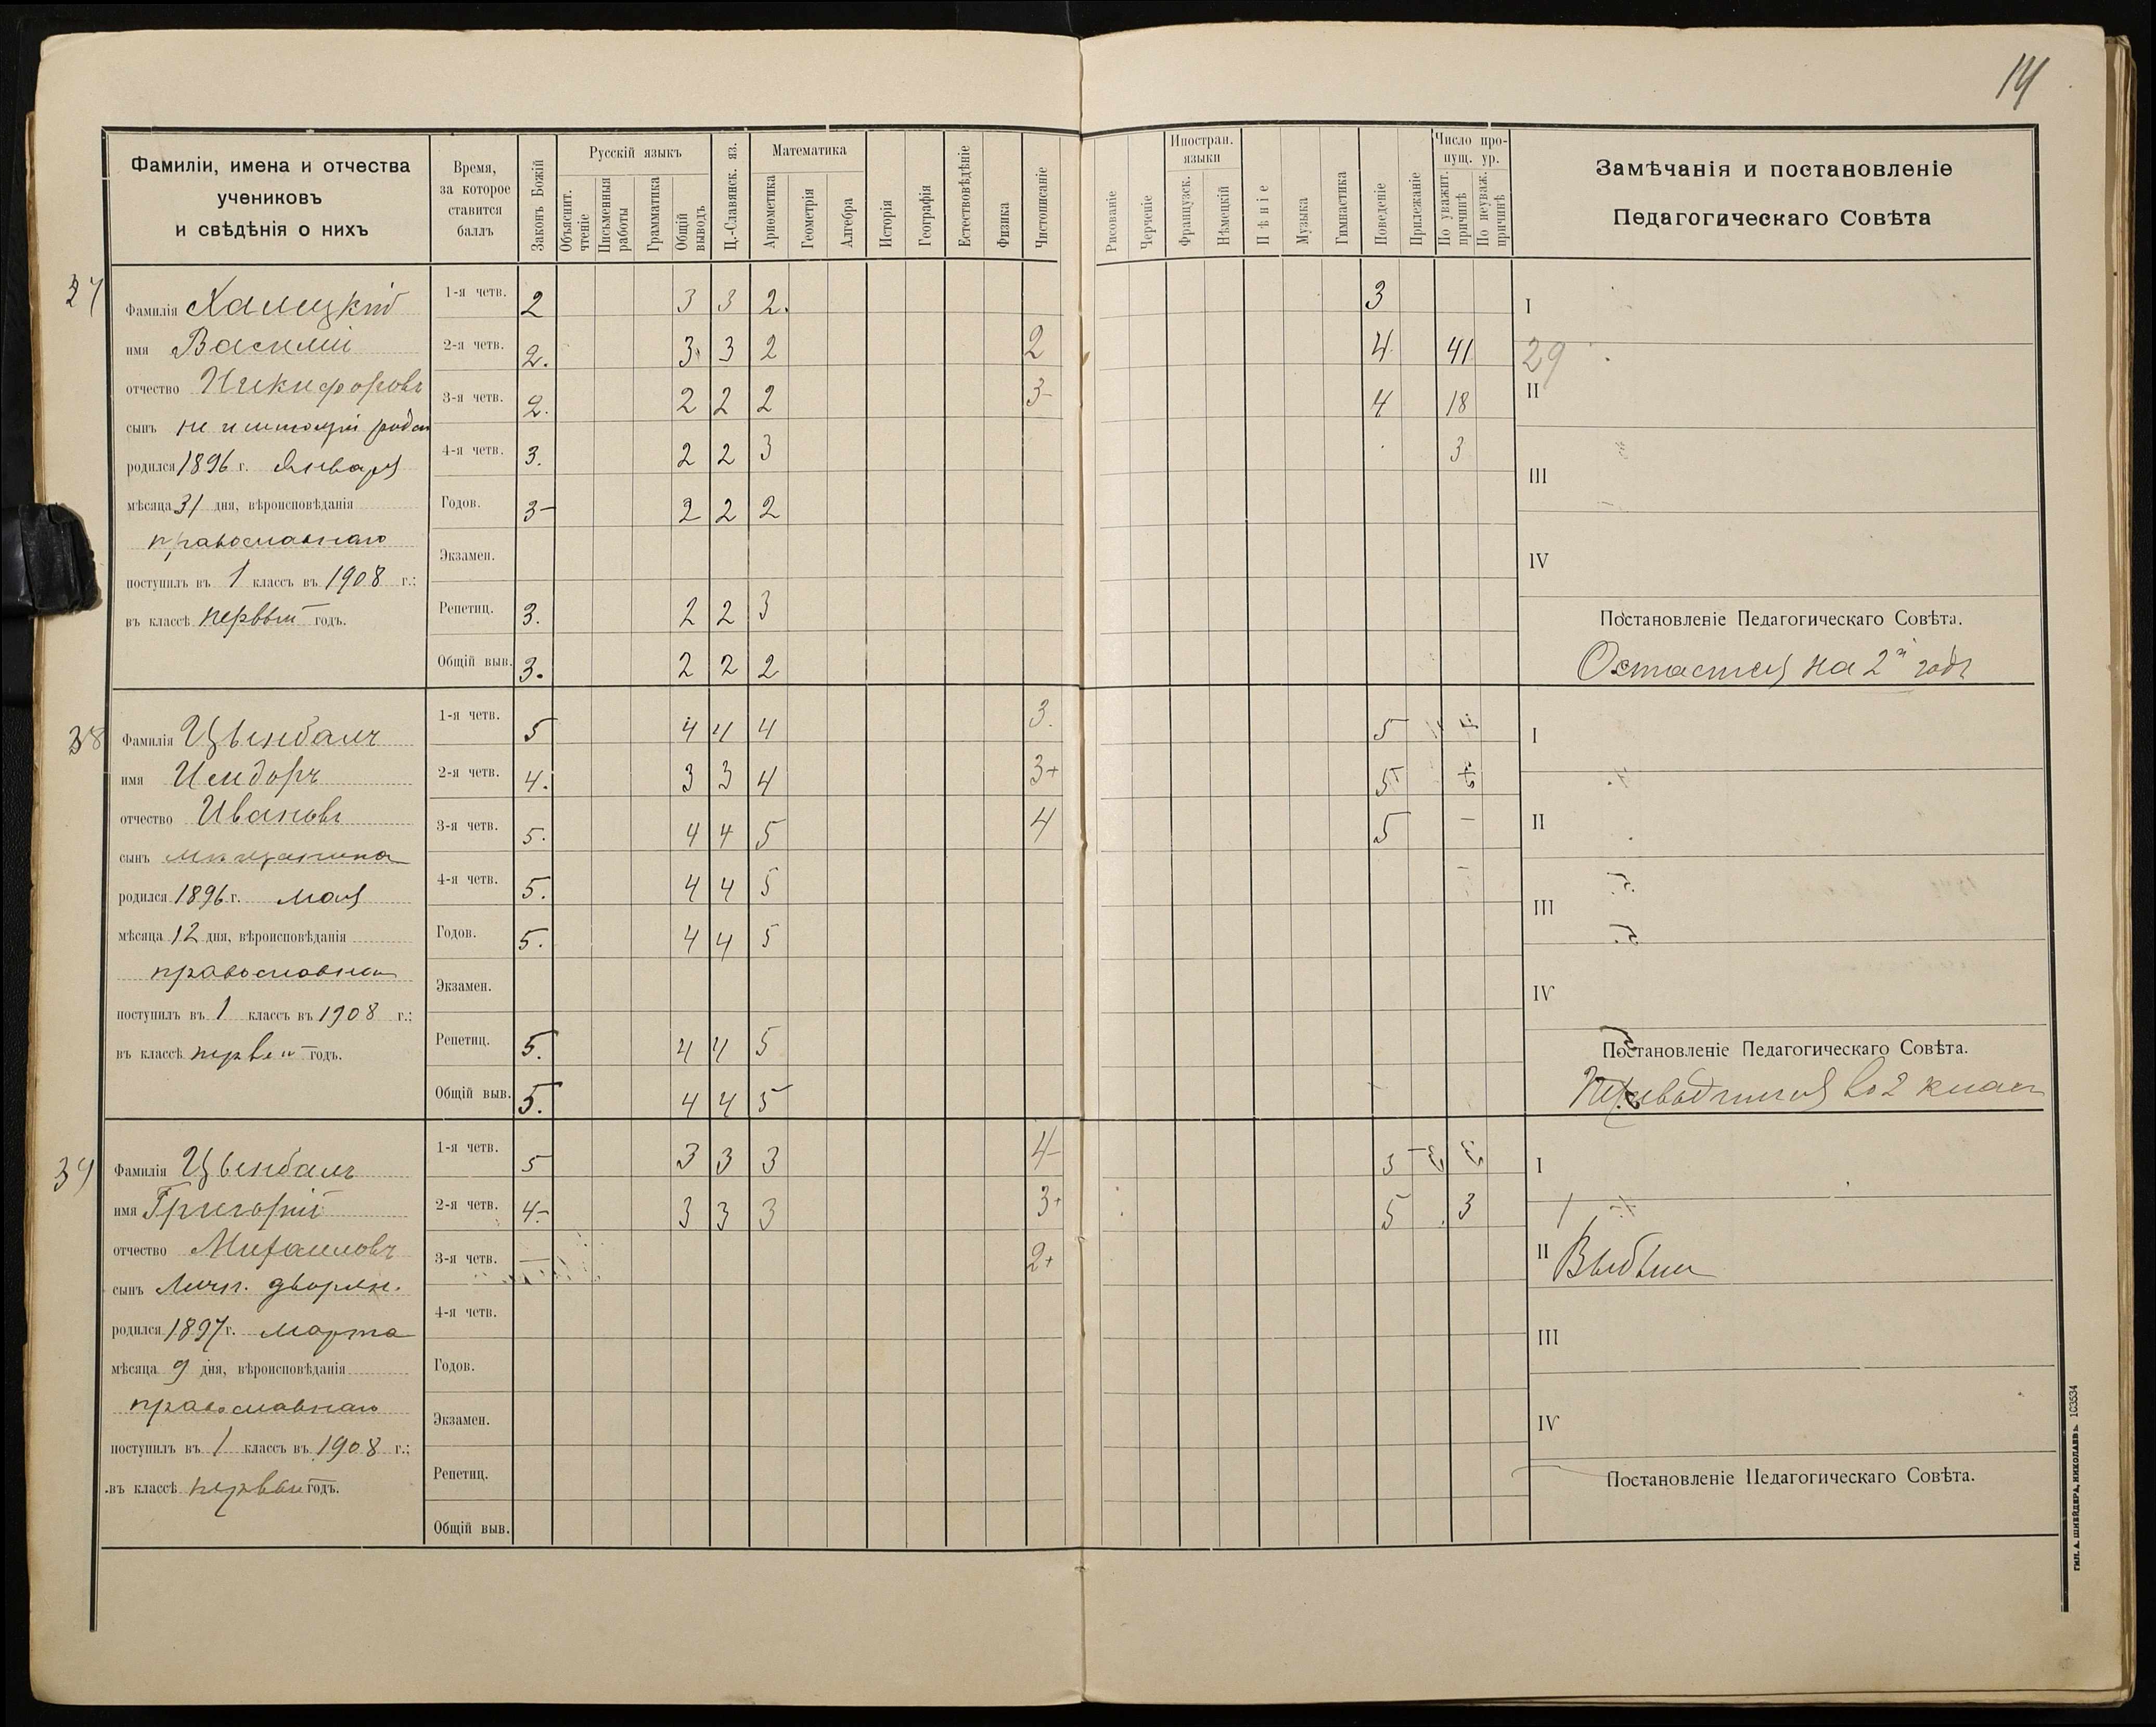 14
Фамиліи, имена и отчества
учениковъ
и свѣдѣнія о нихъ
Время,
за которое
ставится
баллъ
Законъ Божій
Русскій языкъ
Объяснит. чтеніе
Письменныя работы
Грамматика
Общій выводъ
Ц.-Славянск. яз.
Математика
Ариѳметика
Геометрія
Алгебра
Исторія
Географія
Естествовѣдѣніе
Физика
Чистописаніе
Рисованіе
Черченіе
Иностран. языки
Французск.
Нѣмецкій
Пѣніе
Музыка
Гимнастика
Поведеніе
Прилежаніе
Число пропущ. ур.
По уважит. причинѣ
По неуваж. причинѣ
Замѣчанія и постановленіе
Педагогическаго Совѣта
Фамилія
имя Василій
отчество Никифоровъ
сынъ не имѣющій
родился 1896 г. Января
мѣсяца 31 дня, вѣроисповѣданія
православнаго
поступилъ въ 1 классъ въ 1908 г.:
въ классѣ первый годъ.
1-я четв. 2 3 3 2. 3 I
2-я четв. 2. 3 3 2 2 4 41 29
3-я четв. 2. 2 2 2 3- 4 18 II
4-я четв. 3. 2 2 3 3 III
Годов. 3- 2 2 2
Экзамен. IV
Репетиц. 3. 2 2 3
Постановленіе Педагогическаго Совѣта.
Общій выв. 3. 2 2 2
Остается на 2й годъ
38
Фамилія Цвинбалъ
имя Исидоръ
отчество Ивановъ
сынъ мѣщанина
родился 1896 г. Мая
мѣсяца 12 дня, вѣроисповѣданія
православн
поступилъ въ 1 классъ въ 1908 г.:
въ классѣ первый годъ.
1-я четв. 5 4 4 4 3. 5 I
2-я четв. 4. 3 3 4 3+ 5
3-я четв. 5. 4 4 5 4 5 – II
4-я четв. 5. 4 4 5 III
Годов. 5. 4 4 5
Экзамен. IV
Репетиц. 5. 4 4 5
Постановленіе Педагогическаго Совѣта.
Общій выв. 5. 4 4 5
Переводится во 2 классъ
39
Фамилія Цвинбалъ
имя Григорій
отчество Михаиловъ
сынъ Личн. дворян.
родился 1897 г. Марта
мѣсяца 9 дня, вѣроисповѣданія
православнаго
поступилъ въ 1 классъ въ 1908 г.:
въ классѣ первый годъ.
1-я четв. 5 3 3 3 4- I
2-я четв. 4- 3 3 3 3+ 5 3
3-я четв. – 2+ II Выбылъ
4-я четв. III
Годов.
Экзамен. IV
Репетиц.
Постановленіе Педагогическаго Совѣта.
Общій выв.
ТИП. А. ШНЕЙДЕРА, НИКОЛАЕВЪ 103534